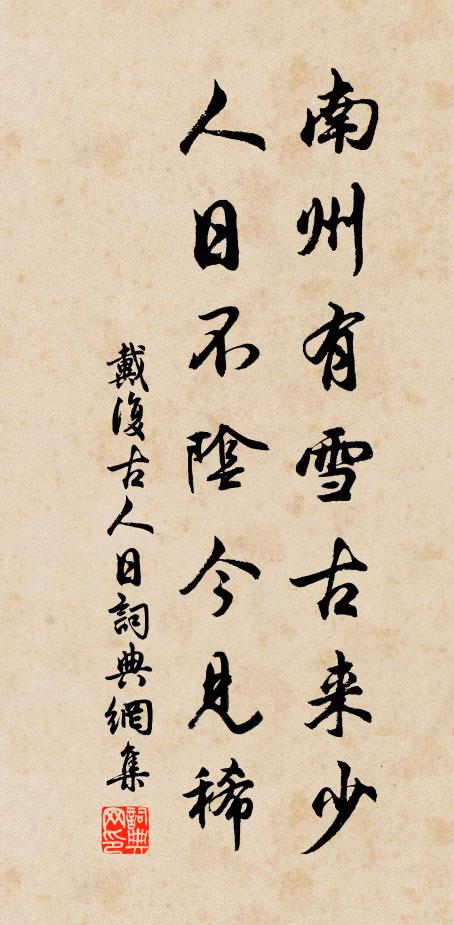 南州有雪古来少
人日不陰今見稀
戴復古人日詞典網集
詞典网印